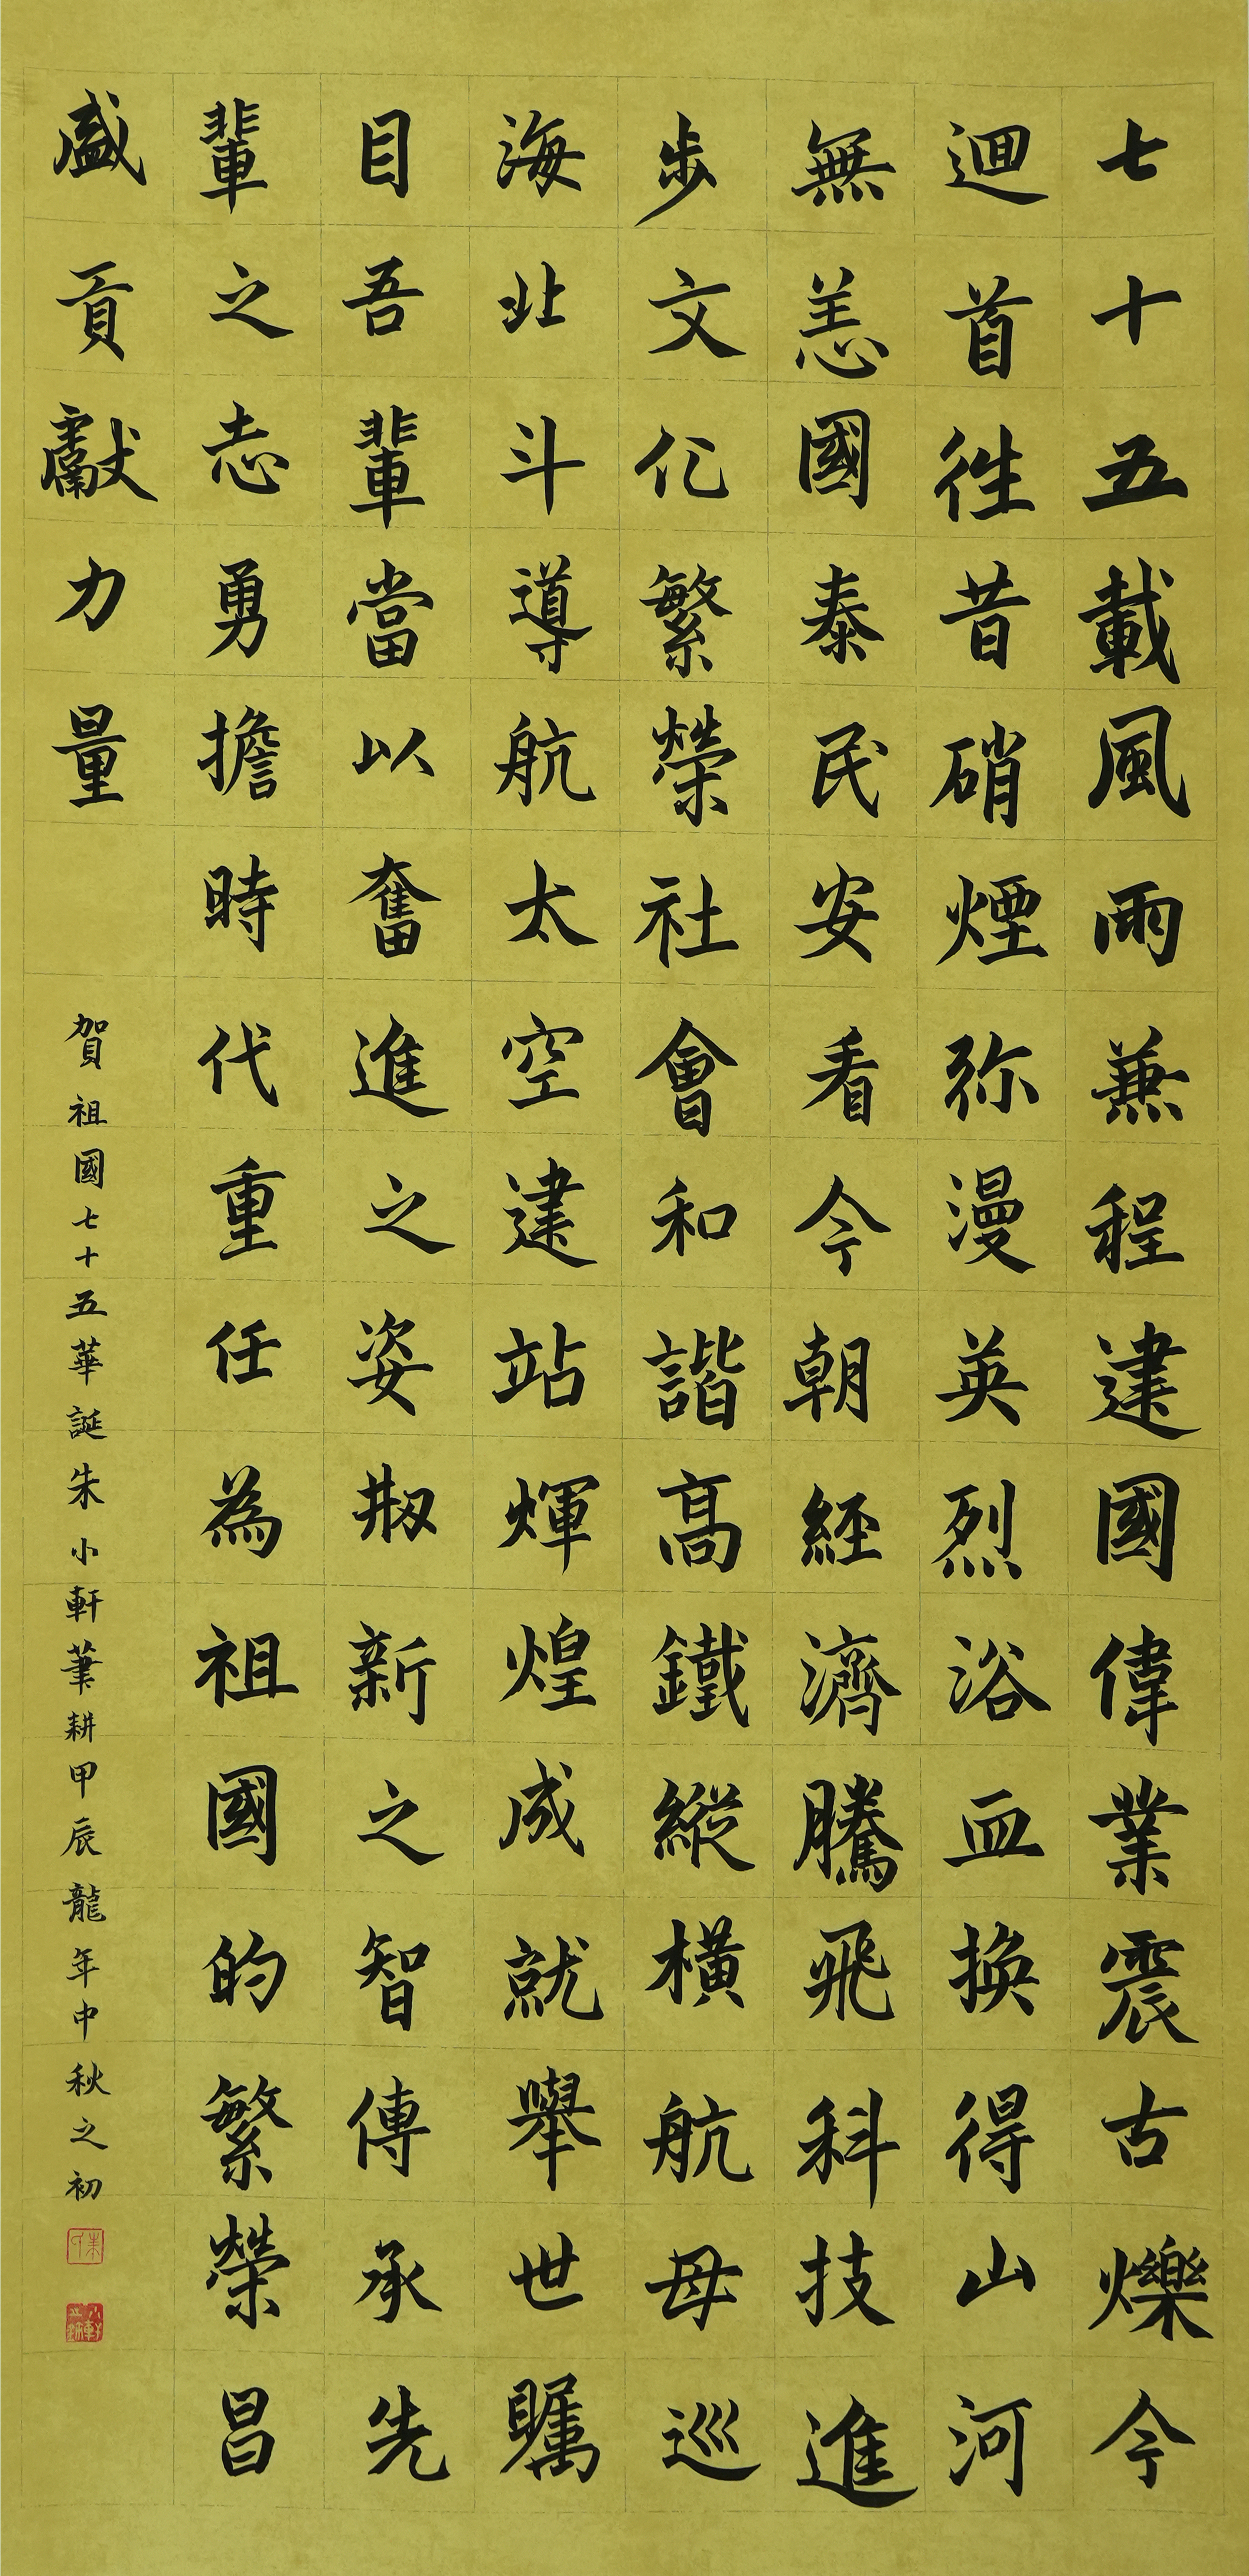 七十五載風雨兼程建國偉業震古爍今
迴首往昔硝煙弥漫英烈浴血換得山河
無恙國泰民安看今朝經濟騰飛科技進
步文化繁榮社會和諧高鐵縱橫航母巡
海北斗導航太空建站輝煌成就舉世矚
目吾輩當以奮進之姿剏新之智傳承先
輩之志勇擔時代重任為祖國的繁榮昌
盛貢獻力量
賀祖國七十五華誕朱小軒筆耕甲辰龍年中秋之初